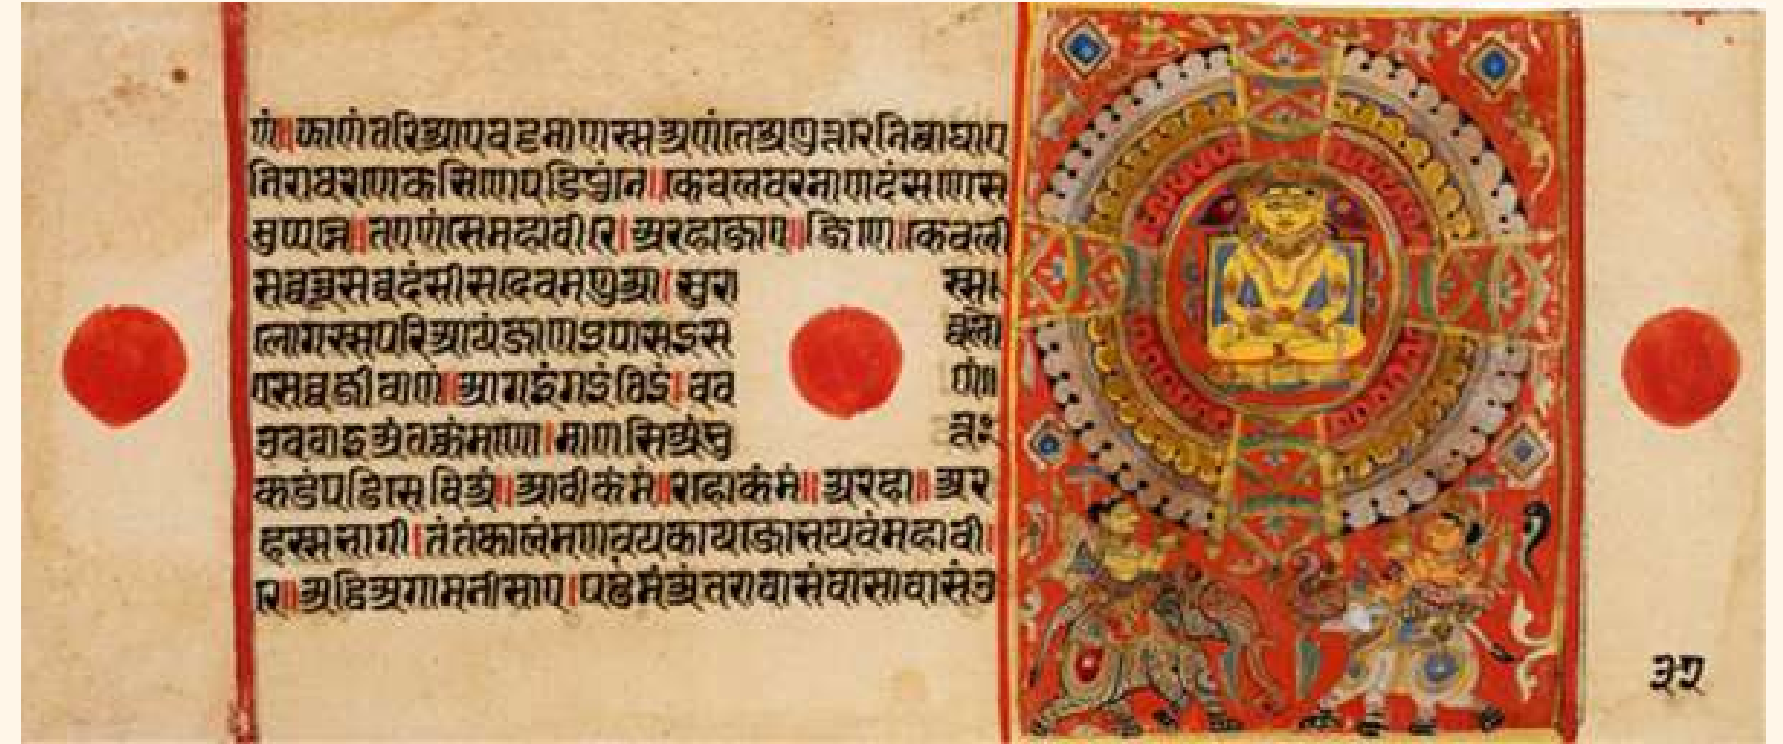 णं॥झाणंतरिआएवट्टमाणस्सअणंतेअणुत्तरेनिव्वाघाए
निरावरणेकसिणेपडिपुंने॥केवलवरनाणदंसणेस
मुप्पन्ने॥तएणंसेमहावीरे।अरहाजाए॥जिणे॥केवली
सव्वन्नूसव्वदंसीसदेवमणुआ।सुरा स्स।
लोगस्सपरिआयंजाणइपासइस व्वलो
एसव्वजीवाणं॥आगइंगइंठिइं।चव णं॥
उववाइअंतक्कंमणो।माणसिअंभु त्तं
कडंपडिसेविअं॥आवीकंमं॥रहोकंमं॥अरहा॥अर
हस्सभागी।तंतंकालंमणवय
रे॥अट्ठिअगामनीसाए।पढमंअंतरावासंवासावासंउ
३५